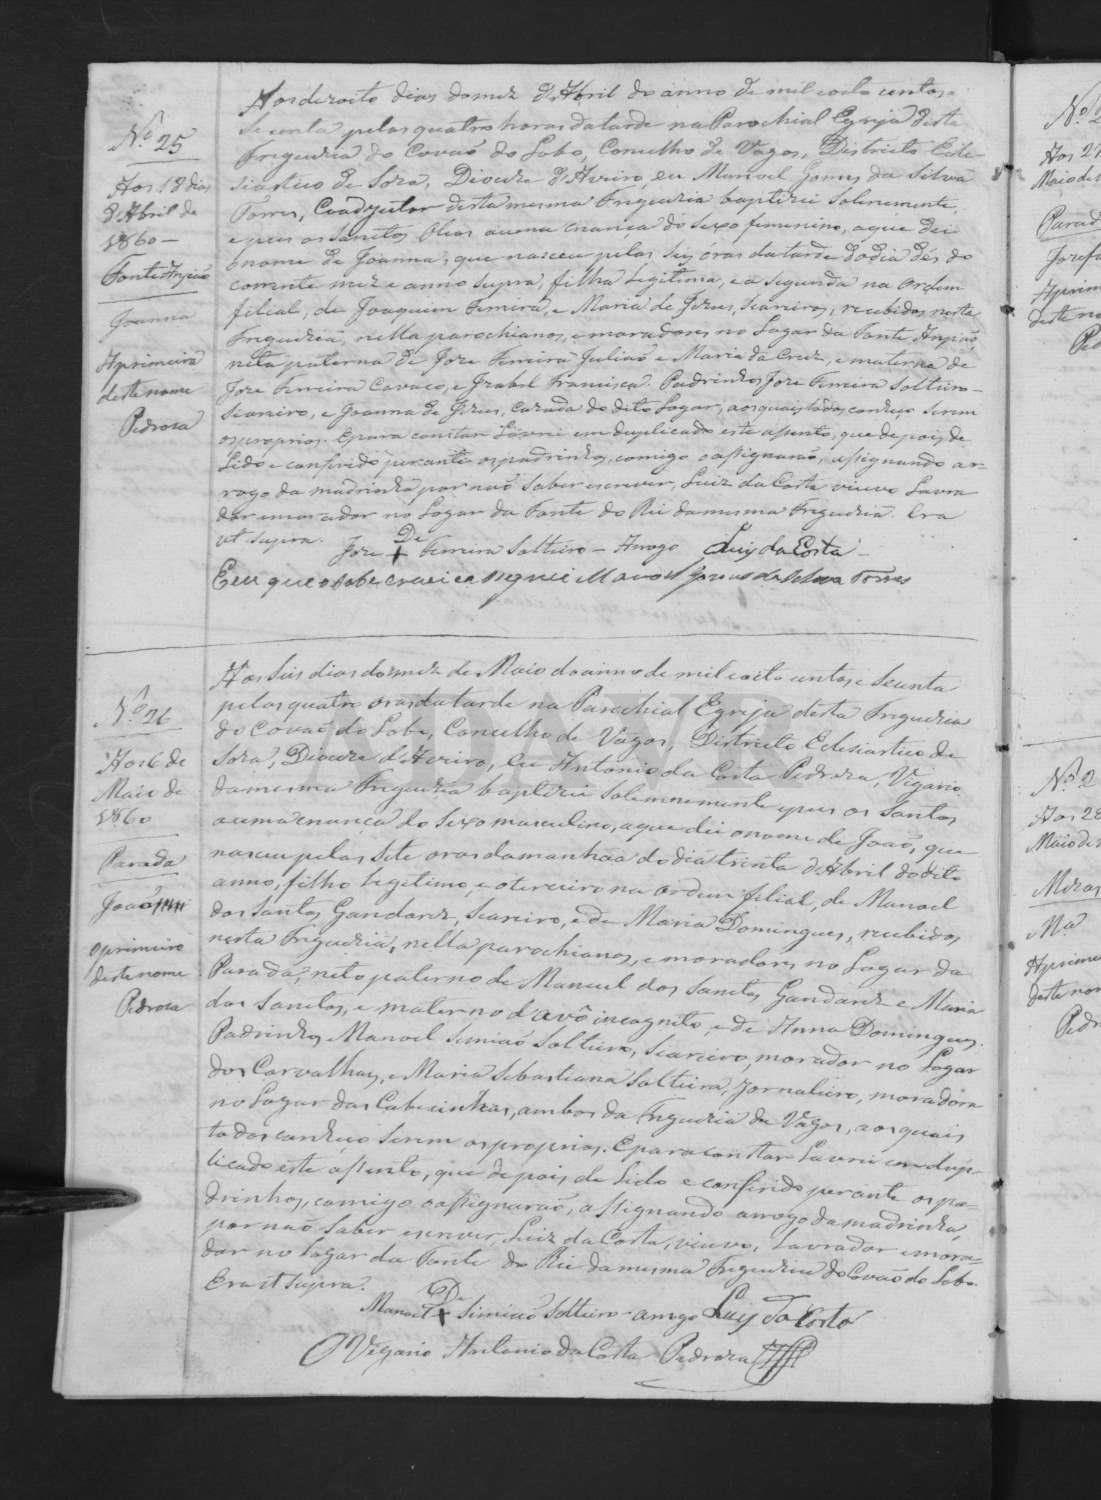 Nº 25
Aos 18 dias
d'Abril de
1860 —
Fonte Anjiaõ
Joanna
A primeira
deste nome
Pedroza
Aos dezoito dias do mez d'Abril do anno de mil e oito centos e
secenta pelas quatro horas da tarde na Parochial Egreja desta
Freguezia do Covaõ do Lobo, Concelho de Vagos, Districto Ecle-
siastico de Soza, Diocese d'Aveiro, eu Manoel Gomes da Silva
Torres, Coadjutor desta mesma Freguezia baptizei solenemente,
e puz os santos Oleos a uma criança do sexo femenino, a que dei
o nome de Joanna, que nasceu pelas seis óras da tarde do dia dés do
corrente mez e anno supra, filha legitima, e a segunda na ordem
filial, de Joaquim Ferreira, e Maria de Jezus, Seareiros, recebidos nesta
Freguezia, nella parochianos, e moradores no Lugar da Fonte Anjiaõ,
neta paterna de Joze Ferreira Juliaõ e Maria da Cruz, e materna de
Joze Ferreira Cavaco, e Izabel Francisca. Padrinhos Joze Ferreira Solteiro —
Seareiro, e Joanna de Jezus, cazada do dito Lugar, aos quais todos conheço serem
os proprios. E para constar Lavrei em duplicado este assento, que depois de
Lido e conferido perante os padrinhos, comigo o assignaraõ, assignando ar-
rogo da madrinha por naõ saber escrever, Luiz da Costa viuvo Lavra
dor e morador no Lugar da Fonte do Rei da mesma Freguezia. Era
ut supra.
Joze De + Ferreira Solteiro — Arrogo Luis da Costa —
E eu que o sobescrevi e asegnei Manoel Gomes da Silva Torres
Nº 26
Aos 6 de
Maio de
1860
Parada
Joaõ
o primeiro
deste nome
Pedroza
Aos seis dias do mez de Maio do anno de mil e oito centos e secenta
pelas quatro oras da tarde na Parochial Egreja desta Freguezia
do Covaõ do Lobo, Concelho de Vagos, Districto Eclesiastico de
Soza, Diocese d'Aveiro, eu Antonio da Costa Pedroza, Vigario
da mesma Freguezia baptizei solemnemente e puz os santos
a uma criança do sexo masculino, a que dei o nome de Joaõ, que
nasceu pelas sete oras da manhãa do dia trinta d'Abril do dito
anno, filho legitimo, e o terceiro na ordem filial, de Manoel
dos Santos Gandarez, Seareiro, e de Maria Domingues, recebidos
nesta Freguezia, nella parochianos, e moradores no Lugar da
Parada, neto paterno de Manuel dos Santos Gandarez e Maria
dos Santos, e materno d'avô incognito, e de Anna Domingues.
Padrinhos Manoel Simiaõ Solteiro, Seareiro, morador no Lugar
dos Carvalhais, e Maria Sebastiana Solteira, Jornaleira, moradora
no Lugar das Cabecinhas, ambos da Freguezia de Vagos, aos quais
todos conheço serem os proprios. E para constar Lavrei em dup-
licado este assento, que depois de Lido e conferido perante os pa-
drinhos, comigo o assignaraõ, assignando arrogo da madrinha,
por naõ saber escrever, Luiz da Costa, viuvo, Lavrador e mora-
dor no Lugar da Fonte do Rei da mesma Freguezia do Covaõ do Lobo.
Era ut supra.
Manoel De + Simiaõ Solteiro — arrogo Luis da Costa
O Vigario Antonio da Costa Pedroza
ADAVR
Aos 27
Maio de
Parad
Josefa
A prim
deste no
Ped
Nº 2
Aos 28
Maio de
Mª
A prime
deste nom
Pedr